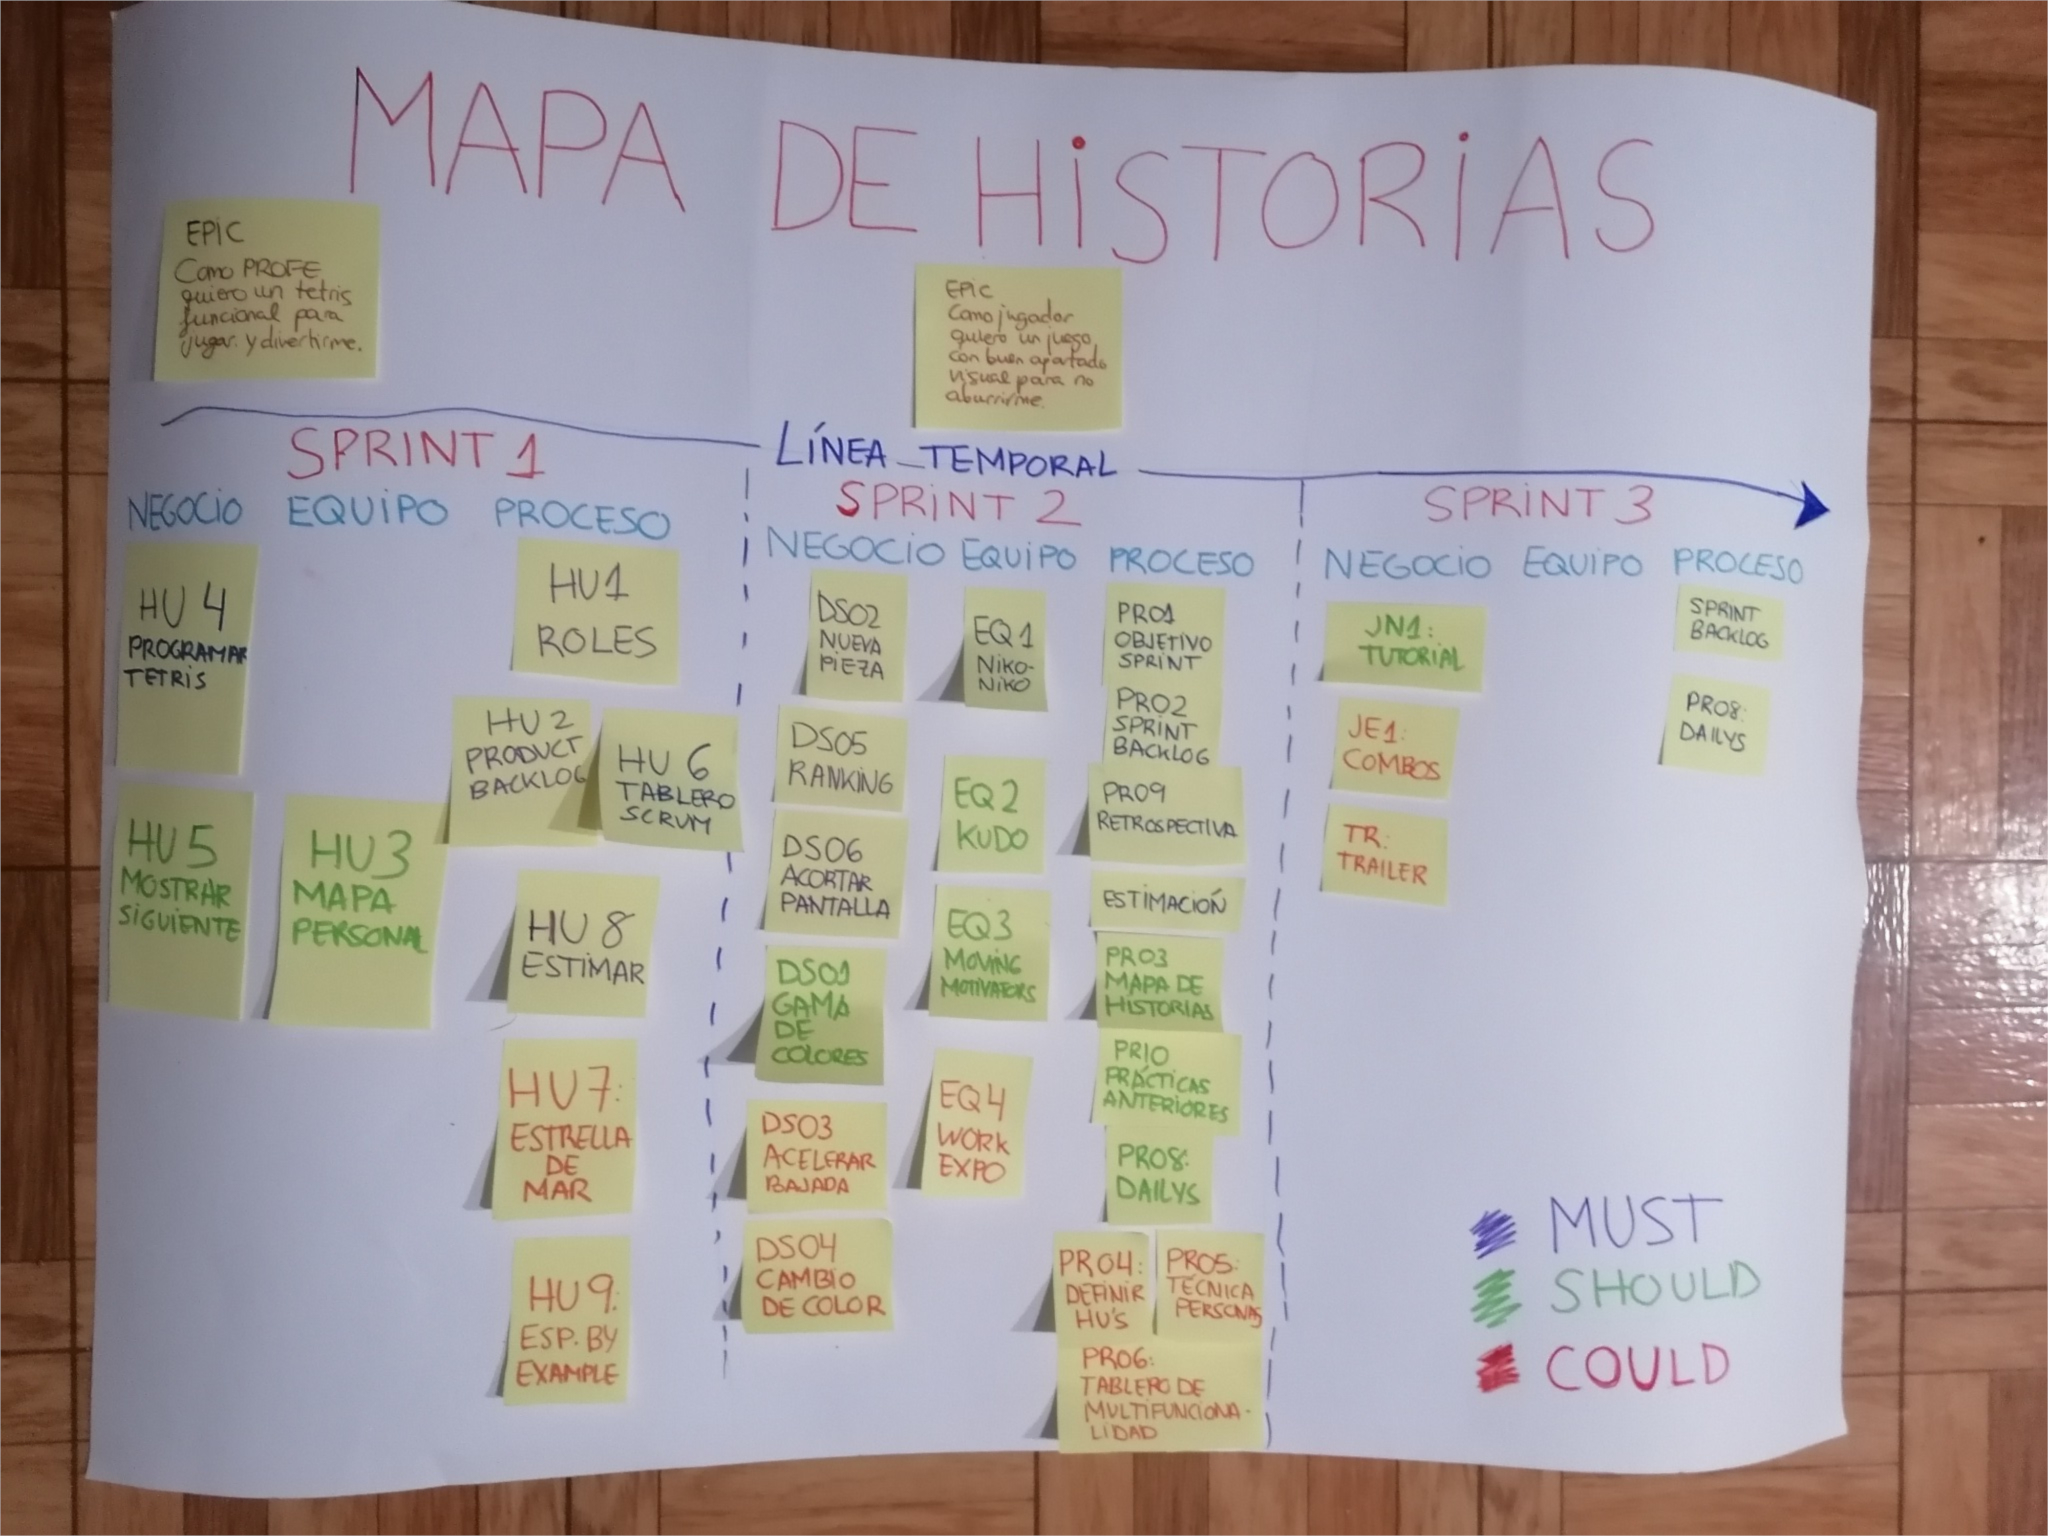 MAPA DE HiSTORiAS
EPiC
Como PROFE
quiero un tetris
funcional para
jugar. y divertirme.
EPiC
Como jugador
quiero un juego
con buen apartado
visual para no
aburrirme.
LÍNEA TEMPORAL
SPRINT 1
NEGOCiO EQUiPO PROCESO
HU 4
PROGRAMAR
TETRiS
HU 5
MOSTRAR
SiGUiENTE
HU 3
MAPA
PERSONAL
HU1
ROLES
HU 2
PRODUCT
BACKLOG
HU 6
TABLERO
SCRUM
HU 8
ESTIMAR
HU7:
ESTRELLA
DE
MAR
HU 9:
ESP. BY
EXAMPLE
SPRiNT 2
NEGOCiO EQUiPO PROCESO
DS02
NUEVA
PiEZA
DS05
RANKiNG
DS06
ACORTAR
PANTALLA
DS01
GAMA
DE
COLORES
DS03
ACELERAR
BAJADA
DS04
CAMBiO
DE COLOR
EQ1
NiKO-
NiKO
EQ2
KUDO
EQ3
MOViNG
MOTiVATORS
EQ4
WORK
EXPO
PRO1
OBJETiVO
SPRiNT
PRO2
SPRiNT
BACKLOG
PRO9
RETROSPECTiVA
ESTiMACiÓN
PRO3
MAPA DE
HiSTORiAS
PR10
PRÁCTiCAS
ANTERiORES
PRO8:
DAiLYS
PRO4:
DEFiNiR
HU'S
PRO5:
TÉCNiCA
PERSONAS
PRO6:
TABLERO DE
MULTiFUNCiONA-
LiDAD
SPRiNT 3
NEGOCiO EQUiPO PROCESO
JN1:
TUTORiAL
JE1:
COMBOS
TR:
TRAiLER
SPRiNT
BACKLOG
PRO8:
DAiLYS
MUST
SHOULD
COULD